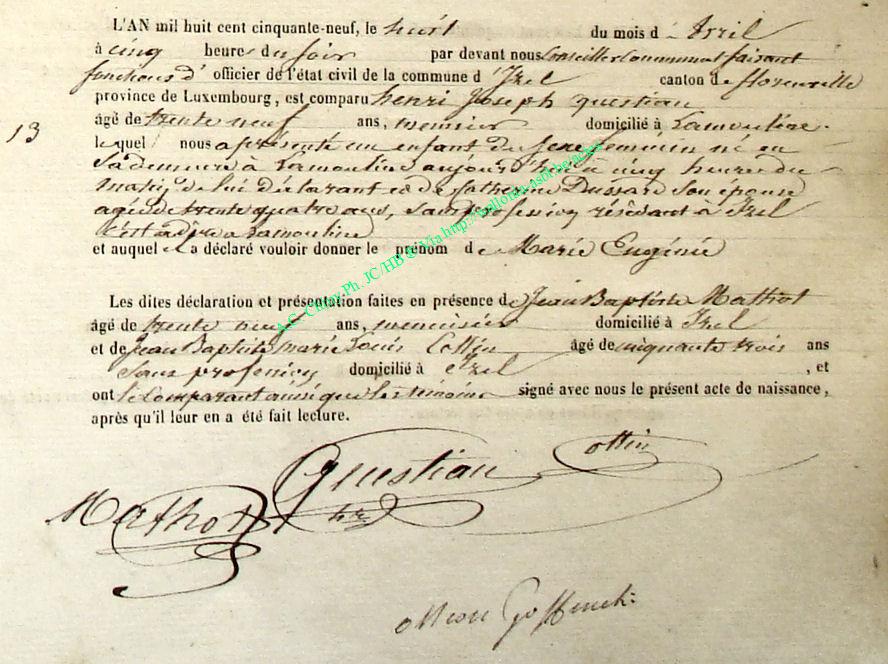 L'AN mil huit cent cinquante-neuf, le huit du mois d'Avril
à cinq heures du soir par devant nous Conseiller Communal faisant
fonctions d'officier de l'état civil de la commune d'Izel canton de florenville
province de Luxembourg, est comparu henri Joseph questiau
13
âgé de trente neuf ans, meunier domicilié à Lamouline.
lequel nous a présenté un enfant du sexe feminin né en
sa demeure à Lamouline aujourd'hui à cinq heures du
matin, de lui déclarant et de Catherine Dussard son épouse
agée de trente quatre ans, sans profession résidant à Izel
c'est à dire a Lamouline
et auquel il a déclaré vouloir donner le prénom de Marie Eugénie
A.G. Ph. JC/HB & Via http:
Les dites déclaration et présentation faites en présence de Jean Baptiste Mathot
âgé de trente neuf ans, menuisier domicilié à Izel
et de Jean Baptiste marie Louis Collin âgé de cinquante trois ans
sans profession domicilié à Izel, et
ont le Comparant ainsi que les témoins signé avec nous le présent acte de naissance,
après qu'il leur en a été fait lecture.
ottin
Questiau
Mathot